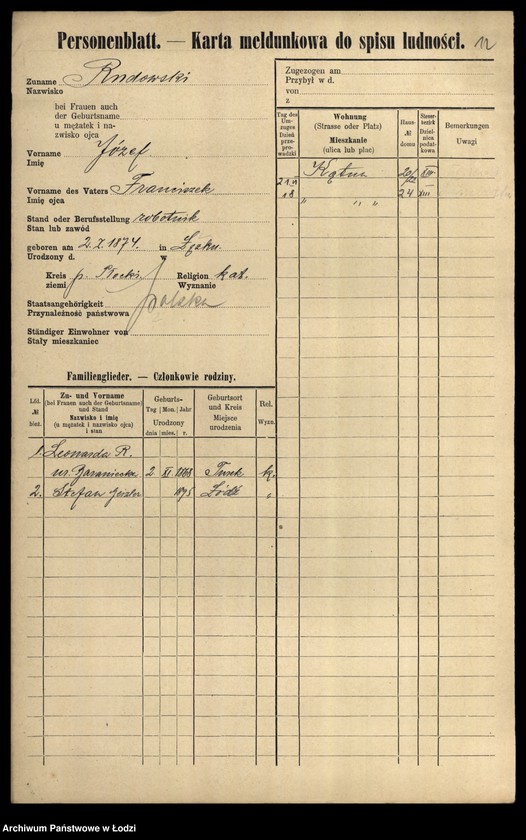 Personenblatt. — Karta meldunkowa do spisu ludności. 12
Zuname Rudowski
Nazwisko
bei Frauen auch
der Geburtsname
u mężatek i na-
zwisko ojca
Vorname Józef
Imię
Vorname des Vaters Franciszek
Imię ojca
Stand oder Berufsstellung robotnik
Stan lub zawód
geboren am 2. I. 1874. in
Urodzony d. w
Kreis p. Płocki Religion kat.
ziemi Wyznanie
Staatsangehörigkeit polska
Przynależność państwowa
Ständiger Einwohner von
Stały mieszkaniec
Zugezogen am
Przybył w d.
von
z
Tag des Um-zuges Dzień prze-prowadzki
Wohnung (Strasse oder Platz) Mieszkanie (ulica lub plac)
Haus- № domu
Steuer-bezirk Dziel-nica podat-kowa
Bemerkungen Uwagi
Kątna 20/22 XIV
21 18 " " " 24 XIII
Familienglieder. — Członkowie rodziny.
Löl. № bież.
Zu- und Vorname (bei Frauen auch der Geburtsname) und Stand Nazwisko i imię (u mężatek i nazwisko ojca) i stan
Geburts- Tag Mon. Jahr Urodzony dnia mies. r.
Geburtsort und Kreis Miejsce urodzenia
Rel. Wyzn.
1. Leonarda R.
ur. Baraniecka 2 XI 1868 Turek k.
2. Stefan Geisler 1895 Łódź "
Archiwum Państwowe w Łodzi